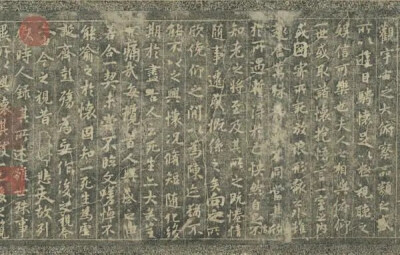 觀宇宙之大俯察品類之盛
所以遊目騁懷足以極視聽之
娛信可樂也夫人之相與俯仰
一世或取諸懷抱悟言一室之內
或因寄所託放浪形骸之外雖
趣舍萬殊靜躁不同當其欣
於所遇蹔得於己怏然自足不
知老之將至及其所之既惓情
隨事遷感慨係之矣向之所
欣俛仰之間以為陳迹猶不
能不以之興懷況脩短隨化終
期於盡古人云死生亦大矣豈
不痛哉每攬昔人興感之由
若合一契未嘗不臨文嗟悼不
能喻之於懷固知一死生為虛
誕齊彭殤為妄作後之視今
亦由今之視昔悲夫故列
敘時人錄其所述雖世殊事
異所以興懷其致